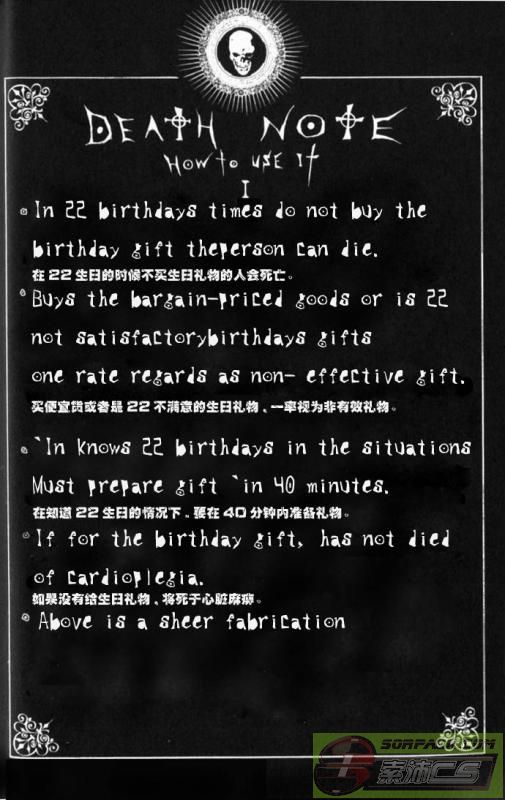 DEATH NOTE
HOW TO USE IT
I
In 22 birthdays times do not buy the
birthday gift theperson can die.
在22生日的时候不买生日礼物的人会死亡。
Buys the bargain-priced goods or is 22
not satisfactorybirthdays gifts
one rate regards as non- effective gift.
买便宜货或者是22不满意的生日礼物、一率视为非有效礼物。
`In knows 22 birthdays in the situations
Must prepare gift `in 40 minutes.
在知道22生日的情况下、要在40分钟内准备礼物。
If for the birthday gift, has not died
of cardioplegia.
如果没有给生日礼物、将死于心脏麻痹。
Above is a sheer fabrication
索沛CS